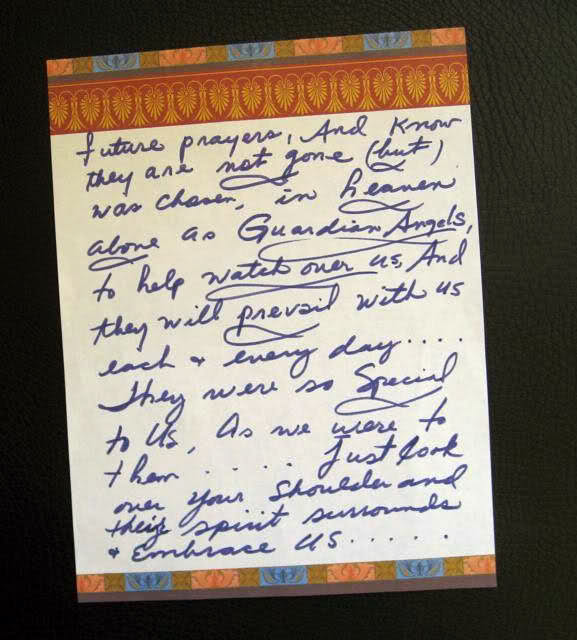 future prayers, And Know
they are not gone (but)
was chosen, in heaven
above as Guardian Angels,
to help watch over us, And
they will prevail with us
each & every day....
They were so Special
to us, As we were to
them..... Just look
over your shoulder and
their spirit surrounds
& Embrace us.....